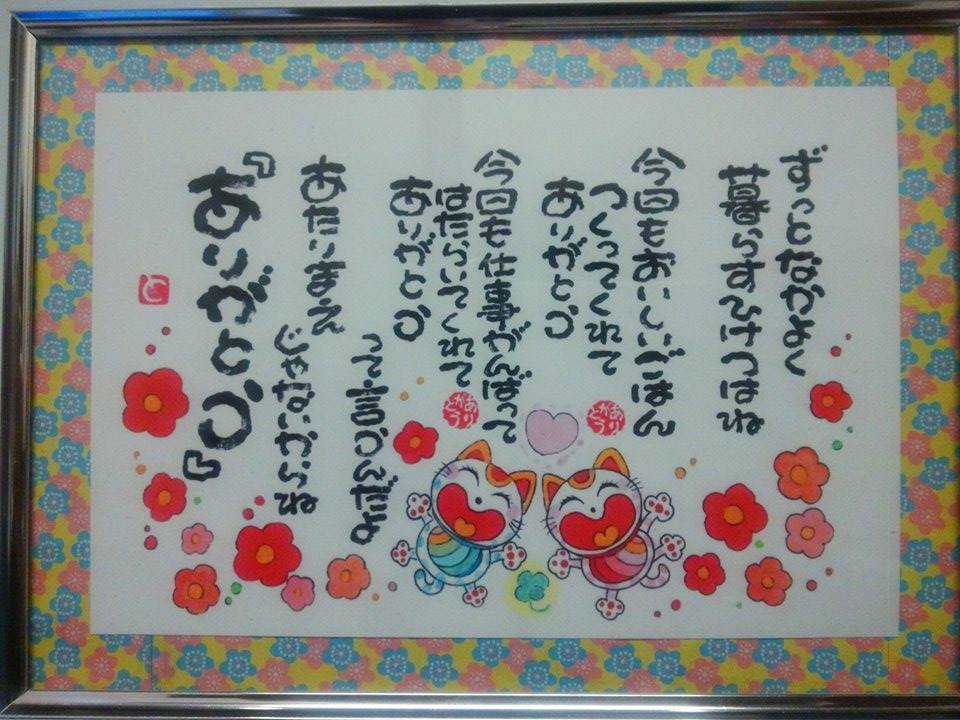 ずっとなかよく
暮らすひけつはね
今日もおいしいごはん
つくってくれて
ありがとう
今日も仕事がんばって
はたらいてくれて
ありがとう
って言うんだよ
あたりまえ
じゃないからね
『ありがとう』
ありがとう
ありがとう
と